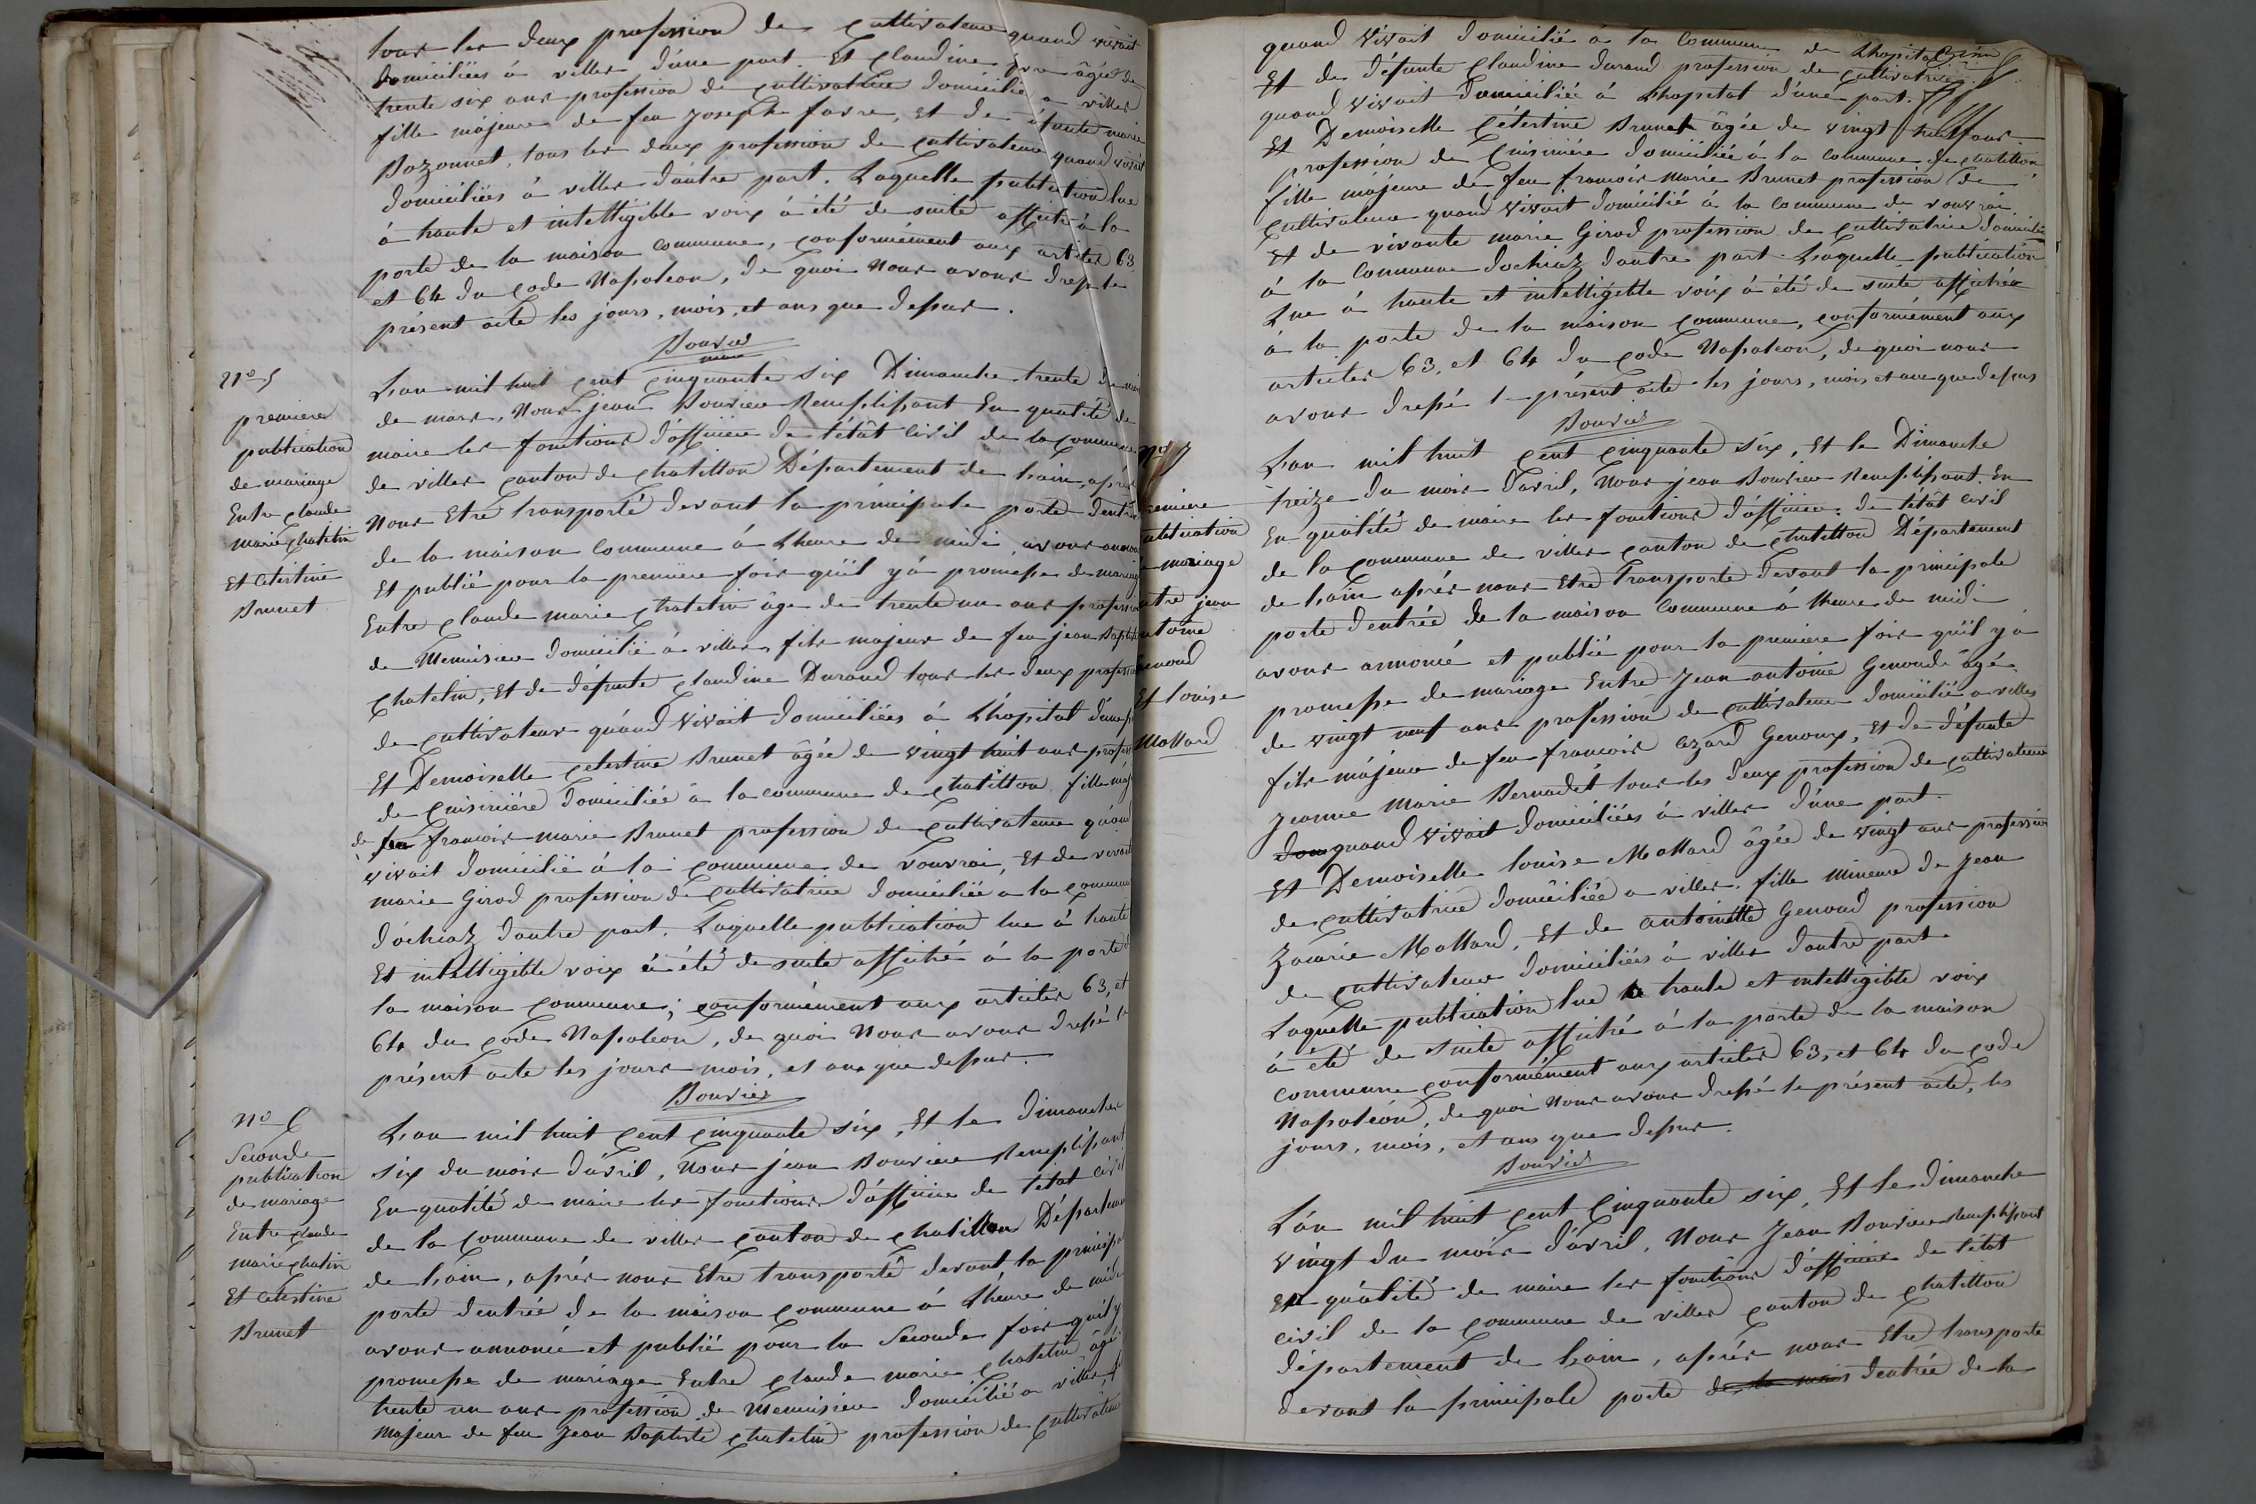 tous les deux profession de cultivateur quand vivait
domiciliés à villes d'une part. Et Claudine âgée de
trente six ans profession de cultivatrice domicilié à villes
fille majeure de feu Joseph favre, et de défunte marie
Bozonnet, tous les deux profession de cultivateur quand vivait
domiciliés à villes d'autre part. Laquelle publication lue
à haute et intelligible voix à été de suite affiché à la
porte de la maison commune, conformément aux articles 63
et 64 du code Napoléon, de quoi Nous avons dressé le
présent acte les jours, mois, et ans que dessus.
Bouvier
maire
N° 5
première
publication
de mariage
Entre claude
marie chatelin
Et Célestine
Brunet
L'an mil huit cent cinquante six Dimanche trente du mois
de mars, Nous jean Bouvier Remplissant En qualité de
maire les fonctions d'officier de l'état civil de la commune
de villes canton de chatillon Département de L'ain, après
Nous Etre transporté devant la principale porte d'entrée
de la maison commune à L'heure de midi, avons annoncé
Et publié pour la première fois qu'il y à promesse de mariage
Entre claude marie chatelin âge de trente un ans profession
de Menuisier domicilié à villes, fils majeur de feu jean Baptiste
chatelin, Et de défunte claudine Durand tous les deux profession
de cultivateur quand vivait domiciliées à L'hopital d'une part
Et Demoiselle célestine Brunet âgée de vingt huit ans profession
de cuisinière domiciliée à la commune de chatillon fille maj
de feu francois marie Brunet profession de cultivateur quand
vivait domicilié à la commune de vouvrai, Et de vivante
marie Girod profession de cultivatrice domiciliée à la commune
d'ochiaz d'autre part. Laquelle publication lue à haute
Et intelligible voix à été de suite affiché à la porte de
la maison commune; conformément aux articles 63, et
64 du code Napoléon, de quoi Nous avons dressé le
présent acte les jours mois, et ans que dessus.
Bouvier
N° 6
Seconde
publication
de mariage
Entre claude
marie chatelin
Et Célestine
Brunet
L'an mil huit cent cinquante six, Et le dimanche
six du mois d'avril, Nous jean Bouvier Remplissant
En qualité de maire les fonctions d'officier de l'état civil
de la commune de villes canton de chatillon Département
de L'ain, après nous Etre transporté devant la principale
porte d'entrée de la maison commune à L'heure de midi
avons annoncé et publié pour la Seconde fois qu'il y
promesse de mariage Entre claude marie chatelin âgé
trente un ans profession de Menuisier domicilié à villes, fils
Majeur de feu Jean Baptiste chatelin profession de cultivateur
quand vivait domicilié à la commune de L'hopital
Et de défunte claudine durand profession de cultivatrice
quand vivait domiciliée à L'hopital d'une part.
Et Demoiselle Célestine Brunet âgée de vingt huit ans
profession de Cuisinière domiciliée à la commune de chatillon
fille majeure de feu francois marie Brunet profession de
cultivateur quand vivait domicilié à la commune de vouvrai
Et de vivante marie Girod profession de cultivatrice domiciliée
à la commune d'ochiaz d'autre part. Laquelle publication
Lue à haute et intelligible voix à été de suite affichée
à la porte de la maison commune, conformément aux
articles 63, et 64 du code Napoléon, de quoi nous
avons dressé l présent acte les jours, mois et ans que dessus
Bouvier
N° 7
remiere
ublication
mariage
ntre jean
ntoine
Genoud
Et louise
Mollard
L'an mil huit cent cinquante six, Et le Dimanche
treize du mois d'avril, Nous jean Bouvier Remplissant. En
En qualité de maire les fonctions d'officier de l'état civil
de la commune de villes canton de chatillon Département
de L'ain après nous Etre Transporté devant la principale
porte d'entrée de la maison commune à L'heure de midi
avons annoncé et publié pour la première fois qu'il y a
promesse de mariage Entre Jean antoine Genoud âgé
de vingt neuf ans profession de cultivateur domicilié à villes
fils majeur de feu francois Genoux, Et de défunte
Jeanne Marie Bernadet tous les deux profession de cultivateur
dom quand vivait domiciliés à villes d'une part.
Et Demoiselle louise Mollard âgée de vingt ans profession
de cultivatrice domiciliée à villes. fille Mineure de Jean
Zacarie Mollard, Et de antoinette Genoud profession
de cultivateur domiciliés à villes d'autre part.
Laquelle publication lue à haute et intelligible voix
à été de suite affiché à la porte de la maison
commune conformément aux articles 63, et 64 du code
Napoléon, de quoi Nous avons dressé le présent acte, les
jours, mois, et ans que dessus.
Bouvier
L'an mil huit cent cinquante six, Et le dimanche
vingt du mois d'avril, Nous Jean Bouvier Remplissant
En qualité de maire les fonctions d'officier de l'état
civil de la commune de villes canton de chatillon
département de L'ain, après nous Etre transporté
devant la principale porte de la mais d'entrée de la